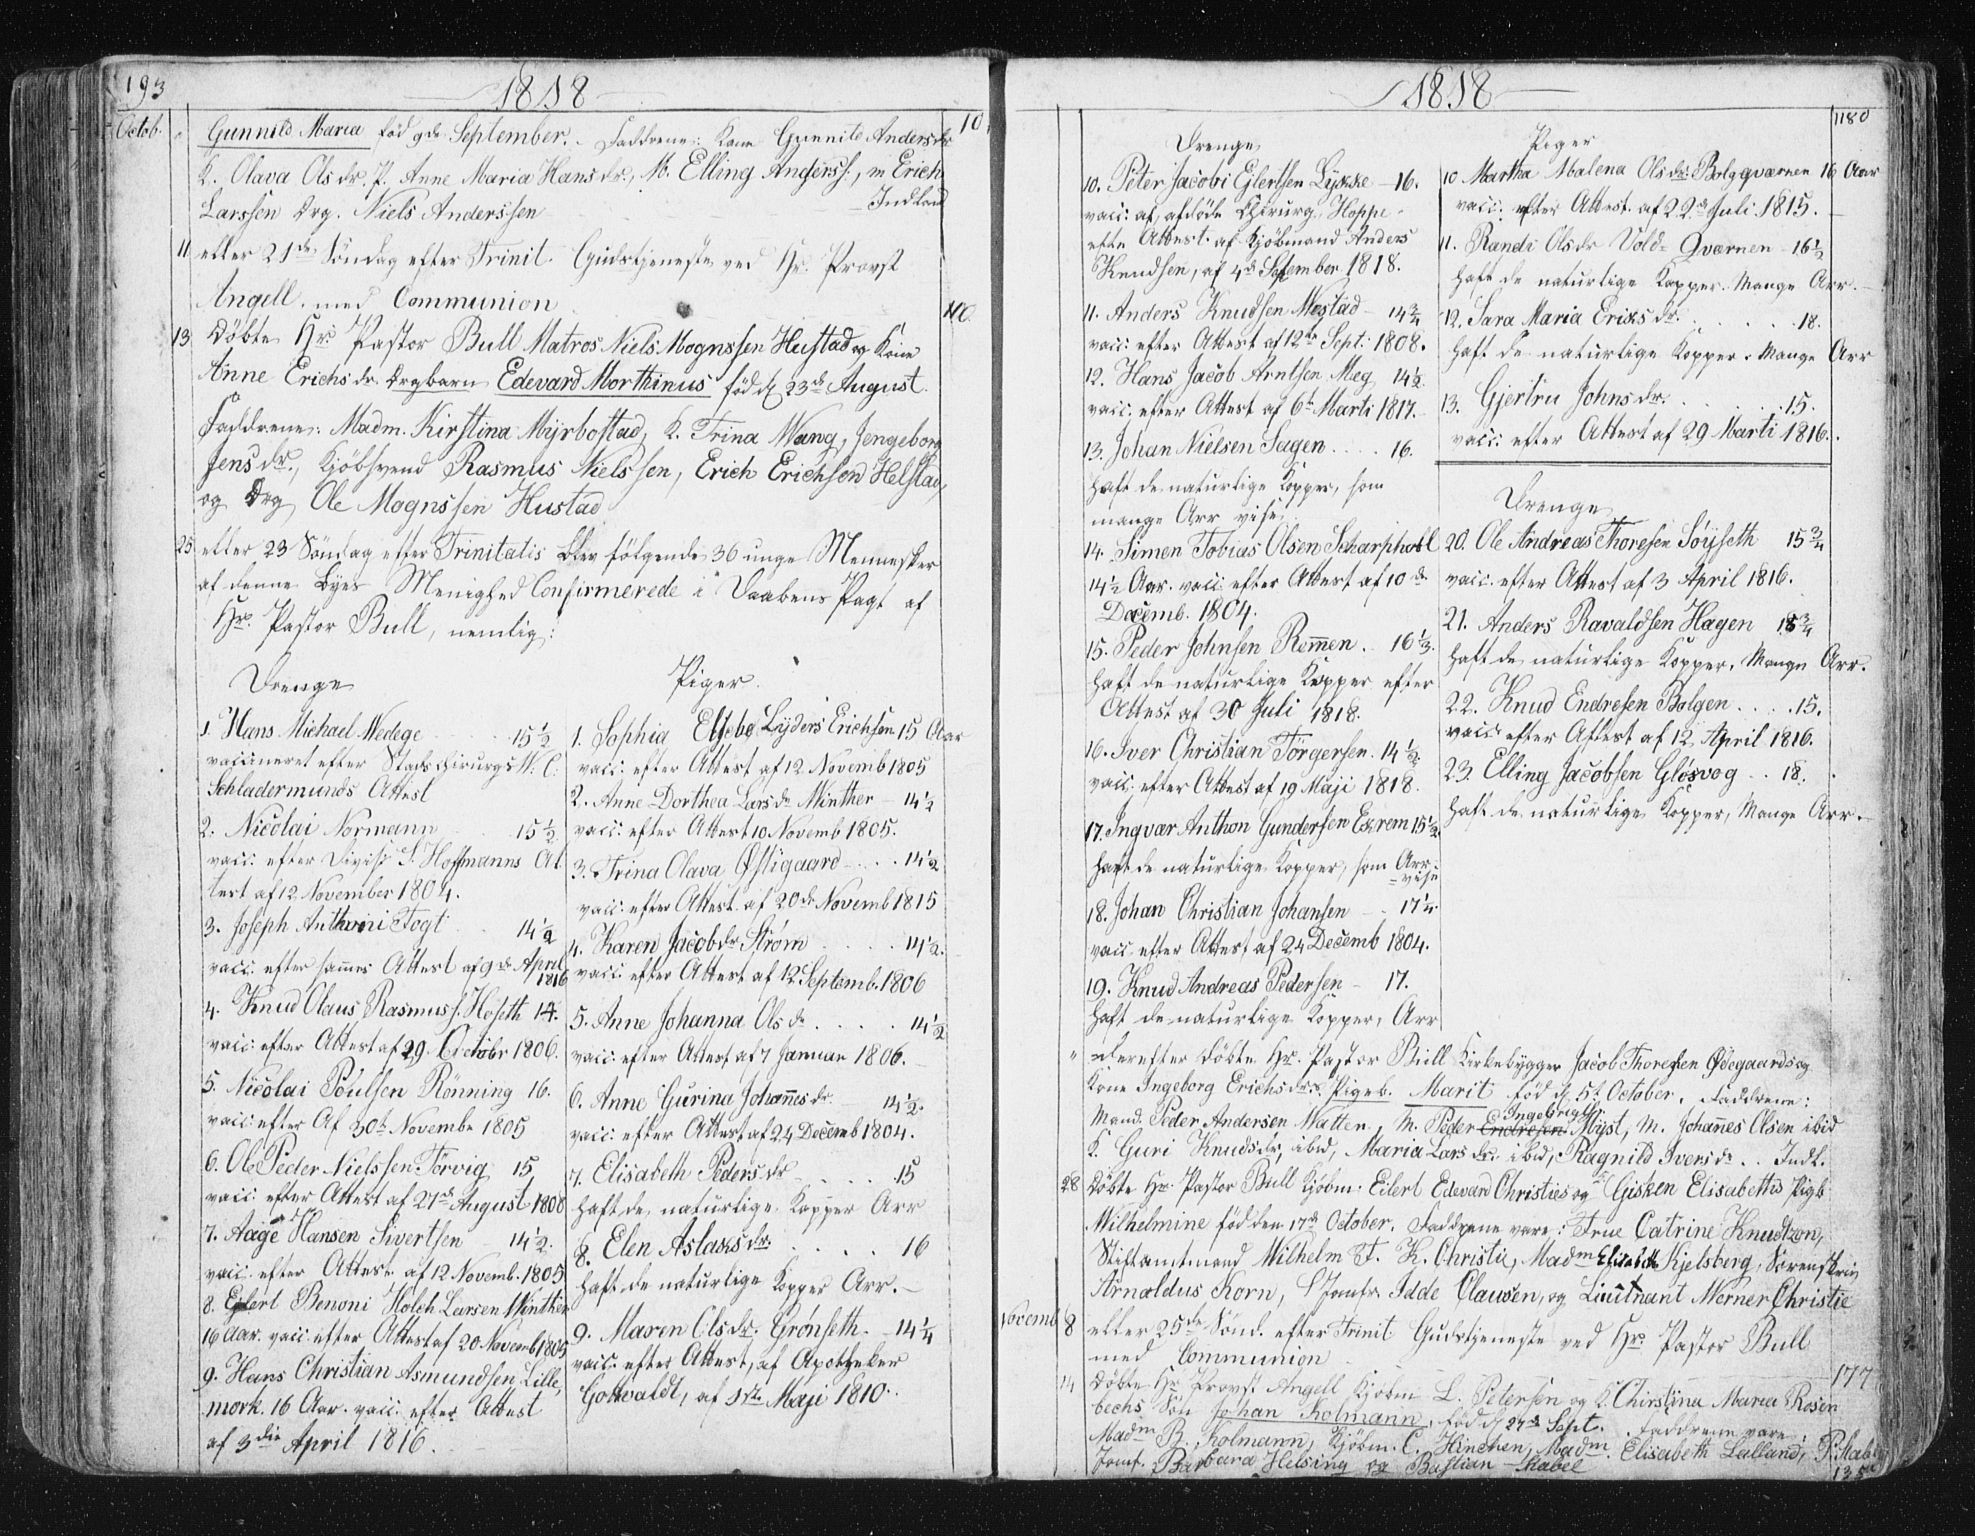 193
1818
Octob. " Gunnild Maria fød 9de September. Faddrene: Kone Gunnild Andersdr 10
K. Olava Olsdr. P. Anne Maria Hansdr., M. Elling Anderss:, m Erich
Larssen Drg. Niels Anderssen Indland
11 eller 21de Søndag efter Trinit. Gudstjeneste ved Hr. Provst
Angell. med Communion 110
13 Døbte Hr Pastor Bull Matros Niels Mognssen Hustad og Kone
Anne Erichsdr. Drgbarn Edevard Morthinus fød d 23de August.
Faddrene: Madm. Kirstina Myrbostad, K. Trina Wang, Jengeborg
Jensdr., Kjøbsvend Rasmus Nielssen, Erich Erichsen Helstad,
og Drg Ole Mognssen Hustad
25 eller 23 Søndag efter Trinitatis blev følgende 36 unge Mennesker
af denne Byes Menighed Confirmerede i Daabens Pagt af
Hr. Pastor Bull, nemlig:
Drenge
1. Hans Michael Wedege 15 1/2
vaccineret efter Stads Chirurgs W. C.
Schladermunds Attest
2. Nicolai Normann 15 1/2
vacc. efter Divis: S. Hoffmanns At
test af 12 November 1804.
3. Joseph Anthoni Fogt 14 1/2
vacc. efter sammes Attest af 9de April
1816
4. Knud Olaus Rasmuss. Hoseth 14.
vacc. efter Attest af 29. Octobr 1806.
5. Nicolai Poulsen Rønning 16.
vacc. efter Af 30t Novembr 1805
6. Ole Peder Nielssen Torvig 15
vacc. efter Attest af 27de August 1808
7. Aage Hansen Sivertsen 14 1/2.
vacc. efter Attest af 12 Novemb. 1805
8. Eilert Benoni Holch Larsen Winther
16 Aar. vacc. efter Attest af 20 Novemb 1805
9. Hans Christian Asmundsen Lille,
mork. 16 Aar. vacc. efter Attest
af 3die April 1816.
Piger
1. Sophia Elsebe Lyders Erichsen 15 Aar
vacc. efter Attest af 12 Novemb 1805
2. Anne Dorthea Larsdr Winther 14 1/2
vacc. efter Attest 10 Novemb 1805.
3. Trina Olava Østigaard 14 1/2
vacc. efter Attest af 20de Novemb 1815
4. Karen Jacobdr Strøm 14 1/2.
vacc. efter Attest af 12 Septemb. 1806
5. Anne Johanna Olsdr 14 1/2
vacc. efter Attest af 7 Januar 1806.
6. Anne Gurina Johannesdr. 14 1/2.
vacc. efter Attest af 24 Decemb 1804.
7. Elisabeth Pedersdr 15
haft de naturlige Kopper Arr
8. Elen Aslaksdr. 16
haft de naturlige Kopper Arr.
9. Maren Olsdr. Grønseth. 14 1/4
vacc. efter Attest, af Apotheker
Gottwaldt, af 1ste Maji 1810.
1818
1180
Drenge
10. Peter Jacobi Ejlertsen Lykke 16.
vacc. af afdøde Chirurg. Hoppe
efte Attest af Kjøbmand Anders
Knudsen, af 4de September 1818.
11. Anders Knudsen Mostad 14 3/4
vacc. efter Attest af 12te Sept: 1808.
12. Hans Jacob Arntsen Meg 14 1/2
vacc. efter Attest af 6te Marti 1817.
13. Johan Nielsen Sagen 16.
haft de naturlige Kopper, som
mange Arr vise,
14. Simen Tobias Olsen Scharphoel
14 1/2 Aar. vacc. efter Attest af 10de
Decemb. 1804.
15. Peder Johnsen Remen. 16 1/3.
haft de naturlige Kopper efter
Attest af 30 Juli 1818.
16. Iver Christian Torgersen. 14 1/2
vacc. efter Attest af 19 Maji 1818.
17. Ingvar Anthon Gundersen Exrem 15 1/2
haft de naturlige Kopper, som Arr
vise
18. Johan Christian Johansen 17 1/4.
vacc efter Attest af 24 Decemb 1804.
19. Knud Andreas Pedersen 17.
haft de naturlige Kopper, Arr
Piger
10 Martha Malena Olsdr. Bolgqværnen 16 Aar
vacc. efter Attest af 22de Juli 1815.
11. Randi Olsdr Vold Qværnen 16 1/2
haft de naturlige Kopper. Mange Arr.
12. Sara Maria Eriksdr. 18.
haft de naturlige Kopper. Mange Arr
13. Gjertru Johnsdr. 15.
vacc. efter Attest af 29 Marti 1816.
Drenge
20. Ole Andreas Thoresen Søuseth 15 3/4
vacc. efter Attest af 3 April 1816.
21. Anders Ravaldsen Hagen 18 3/4
haft de naturlige Kopper, Mange Arr.
22. Knud Endresen Bolgen 15.
vacc. efter Attest af 12 April 1816.
23. Elling Jacobsen Gløsvog 18.
haft de naturlige Kopper, Mange Arr.
" Derefter døbte Hr. Pastor Bull Kirkebygger Jacob Thoresen Ødegaards og
Kone Ingeborg Erichsdrs. Pigeb. Marit fød d 5t October. Faddrene:
Mand. Peder Andersen Watten, M. Peder Endresen Ingebrigts Myst, M. Johanes Olsen ibid
K. Guri Knudsdr, ibid, Maria Larsdr. ibid, Ragnild Iversdr. Indl.
28 Døbte Hr. Pastor Bull Kjøbm. Eilert Edevard Christies og Gisken Elisabeths Pigb
Wilhelmine fød den 17de October. Faddrene vare: Frue Catrine Knudtzon,
Stiftamtmand Wilhelm F. K. Christie, Madm Elisabeth Kjelsberg, Sorenskriv
Arnoldus Korn, Jomfr. Idde Clausen, og Lieutnant Werner Christie
Novemb 8 eller 25de Sønd. efter Trinit Gudstjeneste ved Hr. Pastor Bull
med Communion 177
14 døbte Hr Provst Angell Kjøbm L. Petersen og K. Chirstina Maria Rosen
bechs Søn Johan Kolmann, fød d 27de Sept. Faddrene vare:
Madm B. Kolmann, Kjøbm. C. Hinchen, Madm. Elisabeth Lalland, P. Stabel
Jomf. Barbara Helsing og Bastian Stabel
135